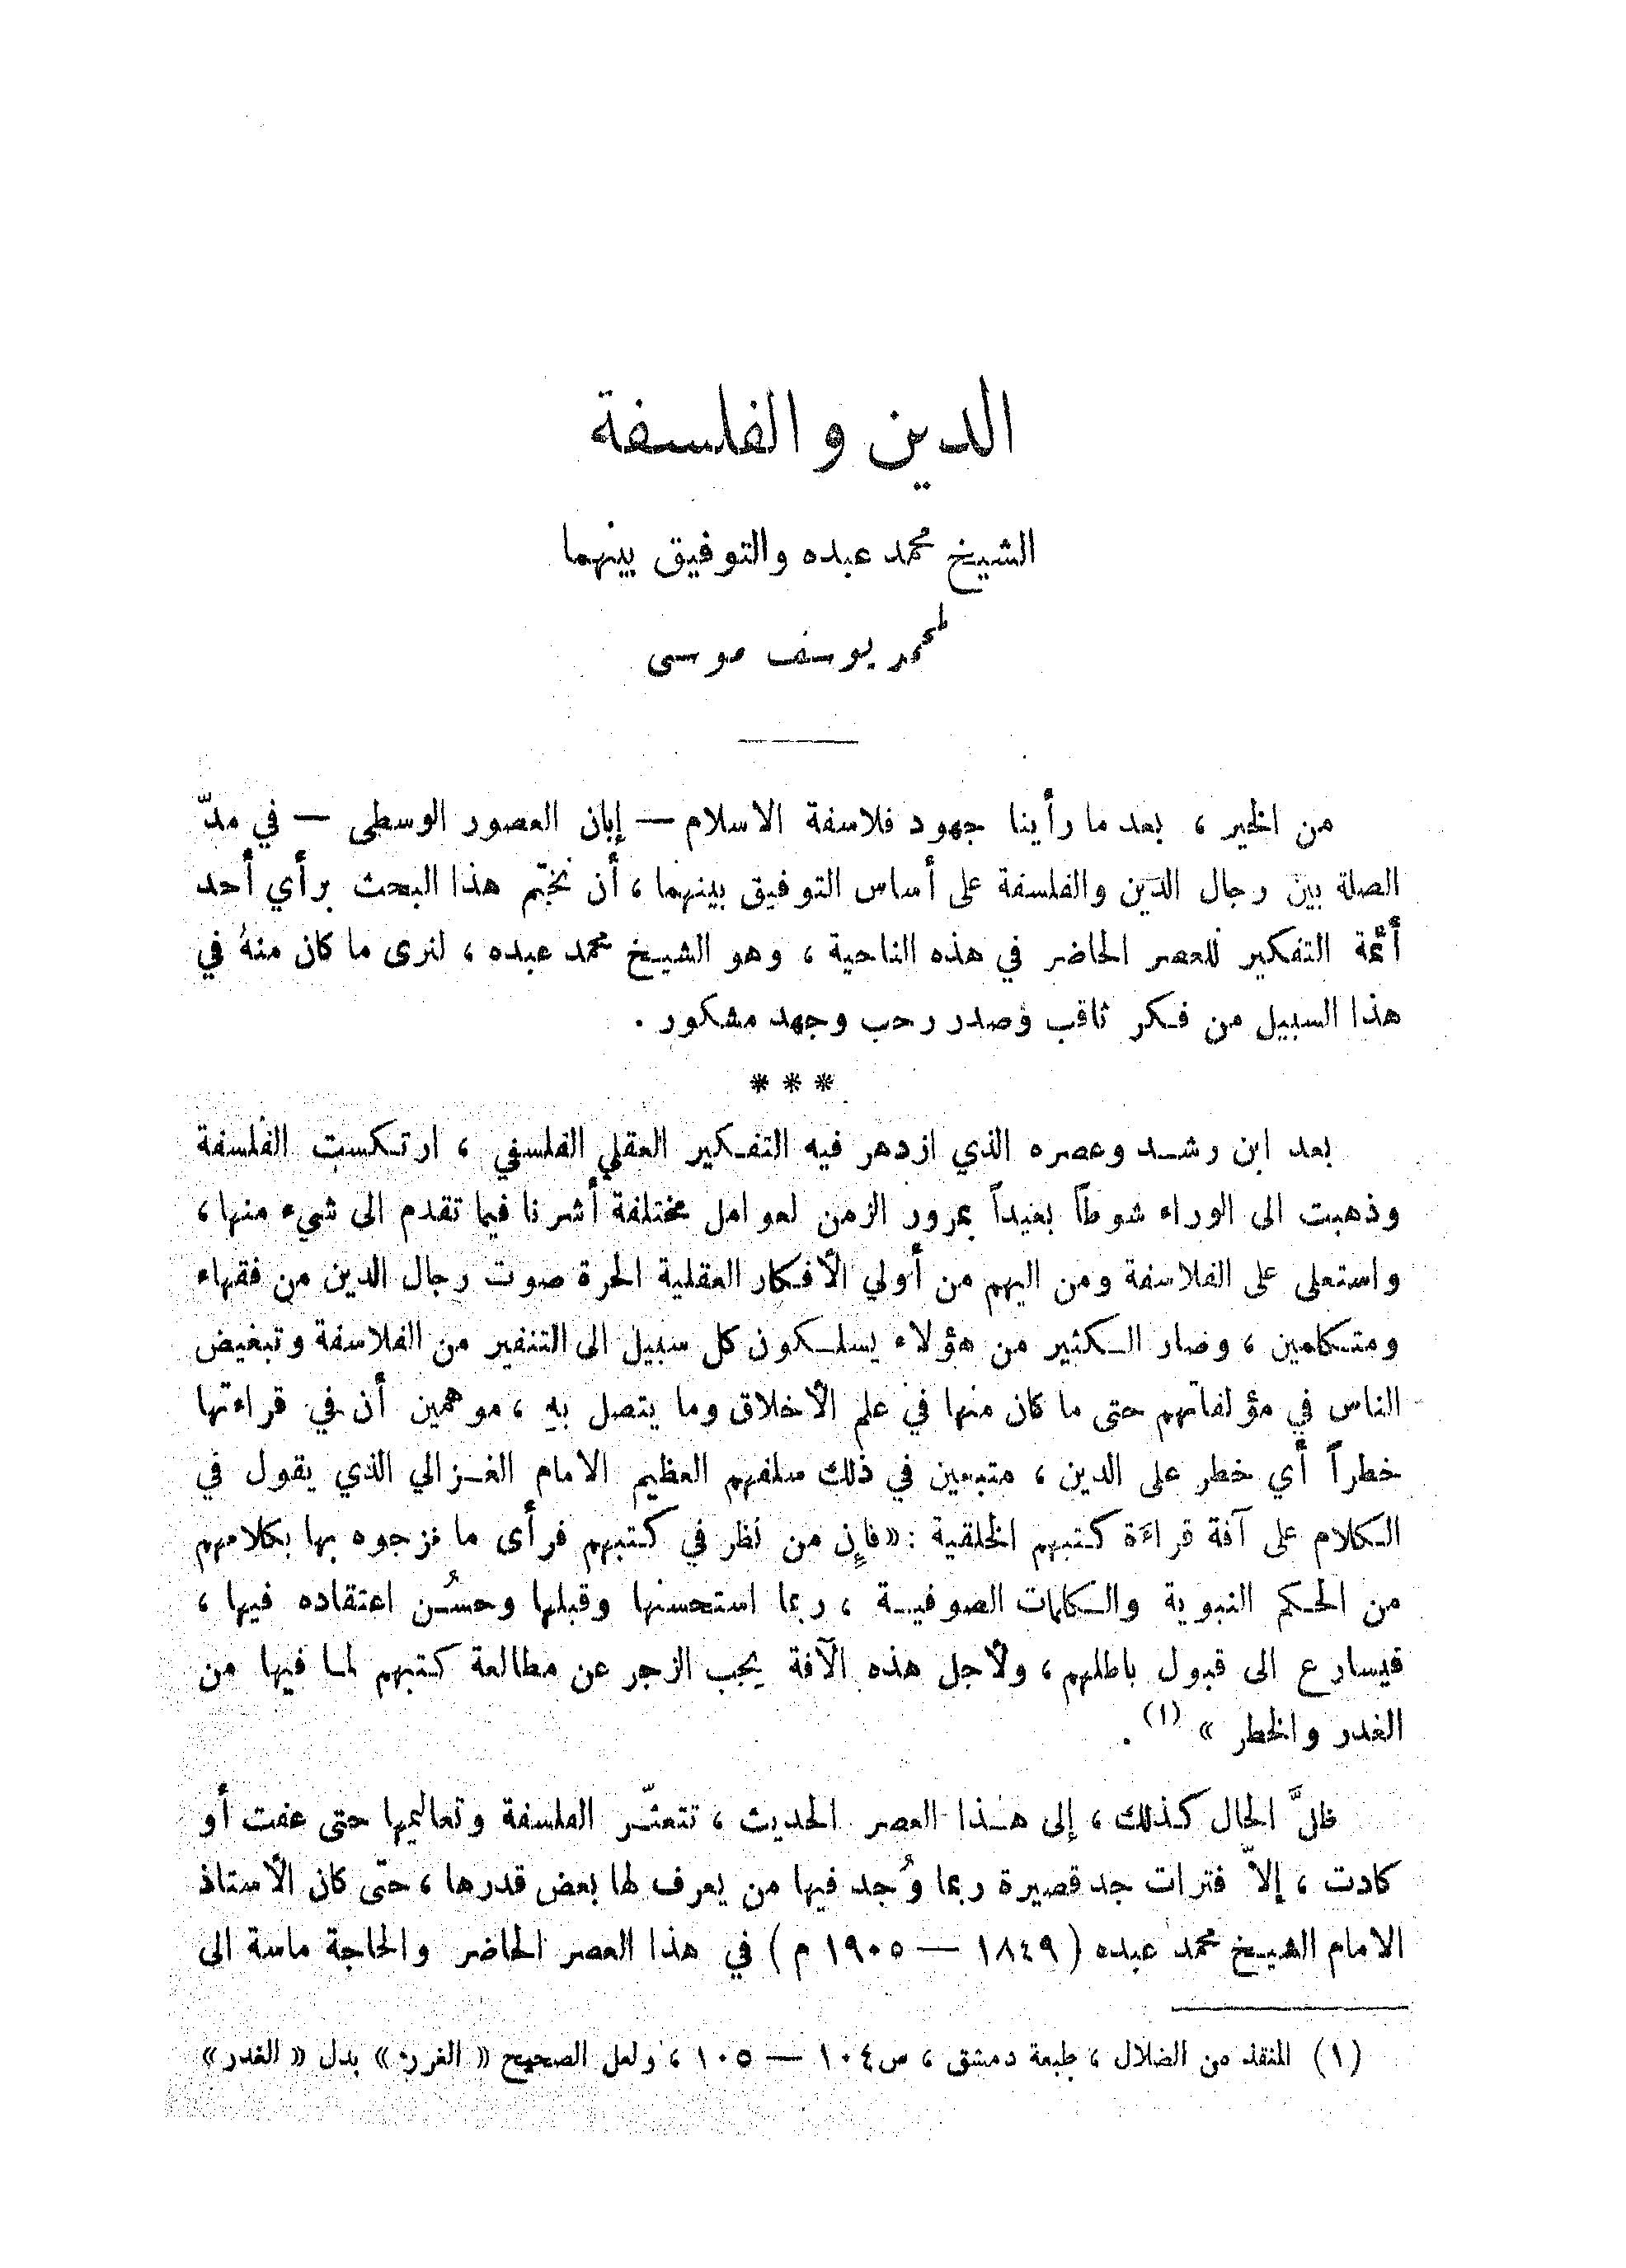 الدين والفلسفة
الشيخ محمد عبده والتوفيق بينهما
لمحمد يوسف موسى
من الخير ، بعد ما رأينا جهود فلاسفة الاسلام — إبان العصور الوسطى — في مدّ
الصلة بين رجال الدين والفلسفة على أساس التوفيق بينهما ، أن نختم هذا البحث برأي أحد
أئمة التفكير للعصر الحاضر في هذه الناحية ، وهو الشيخ محمد عبده ، لنرى ما كان منهُ في
هذا السبيل من فكر ثاقب وصدر رحب وجهد مشكور .
* * *
بعد ابن رشد وعصره الذي ازدهر فيه التفكير العقلي الفلسفي ، ارتكست الفلسفة
وذهبت الى الوراء شوطاً بعيداً بمرور الزمن لعوامل مختلفة أشرنا فيما تقدم الى شيء منها ،
واستعلى على الفلاسفة ومن اليهم من أولي الأفكار العقلية الحرة صوت رجال الدين من فقهاء
ومتكلمين ، وصار الكثير من هؤلاء يسلكون كل سبيل الى التنفير من الفلاسفة وتبغيض
الناس في مؤلفاتهم حتى ما كان منها في علم الأخلاق وما يتصل بهِ ، موهمين أن في قراءتها
خطراً أي خطر على الدين ، متبعين في ذلك سلفهم العظيم الامام الغزالي الذي يقول في
الكلام على آفة قراءَة كتبهم الخلقية : «فإن من نظر في كتبهم فرأى ما مزجوه بها بكلامهم
من الحكم النبوية والكلمات الصوفية ، ربما استحسنها وقبلها وحسُن اعتقاده فيها ،
فيسارع الى قبول باطلهم ، ولأجل هذه الآفة يجب الزجر عن مطالعة كتبهم لما فيها من
الغدر والخطر » (١) .
ظلَّ الحال كذلك ، إلى هذا العصر الحديث ، تتعثّر الفلسفة وتعاليمها حتى عفت أو
كادت ، إلاّ فترات جد قصيرة ربما وُجد فيها من يعرف لها بعض قدرها ، حتّى كان الأستاذ
الامام الشيخ محمد عبده ( ١٨٤٩ — ١٩٠٥ م ) في هذا العصر الحاضر والحاجة ماسة الى
(١) المنقذ من الضلال ، طبعة دمشق ، ص١٠٤ — ١٠٥ ، ولعل الصحيح « الغرر » بدل « الغدر »